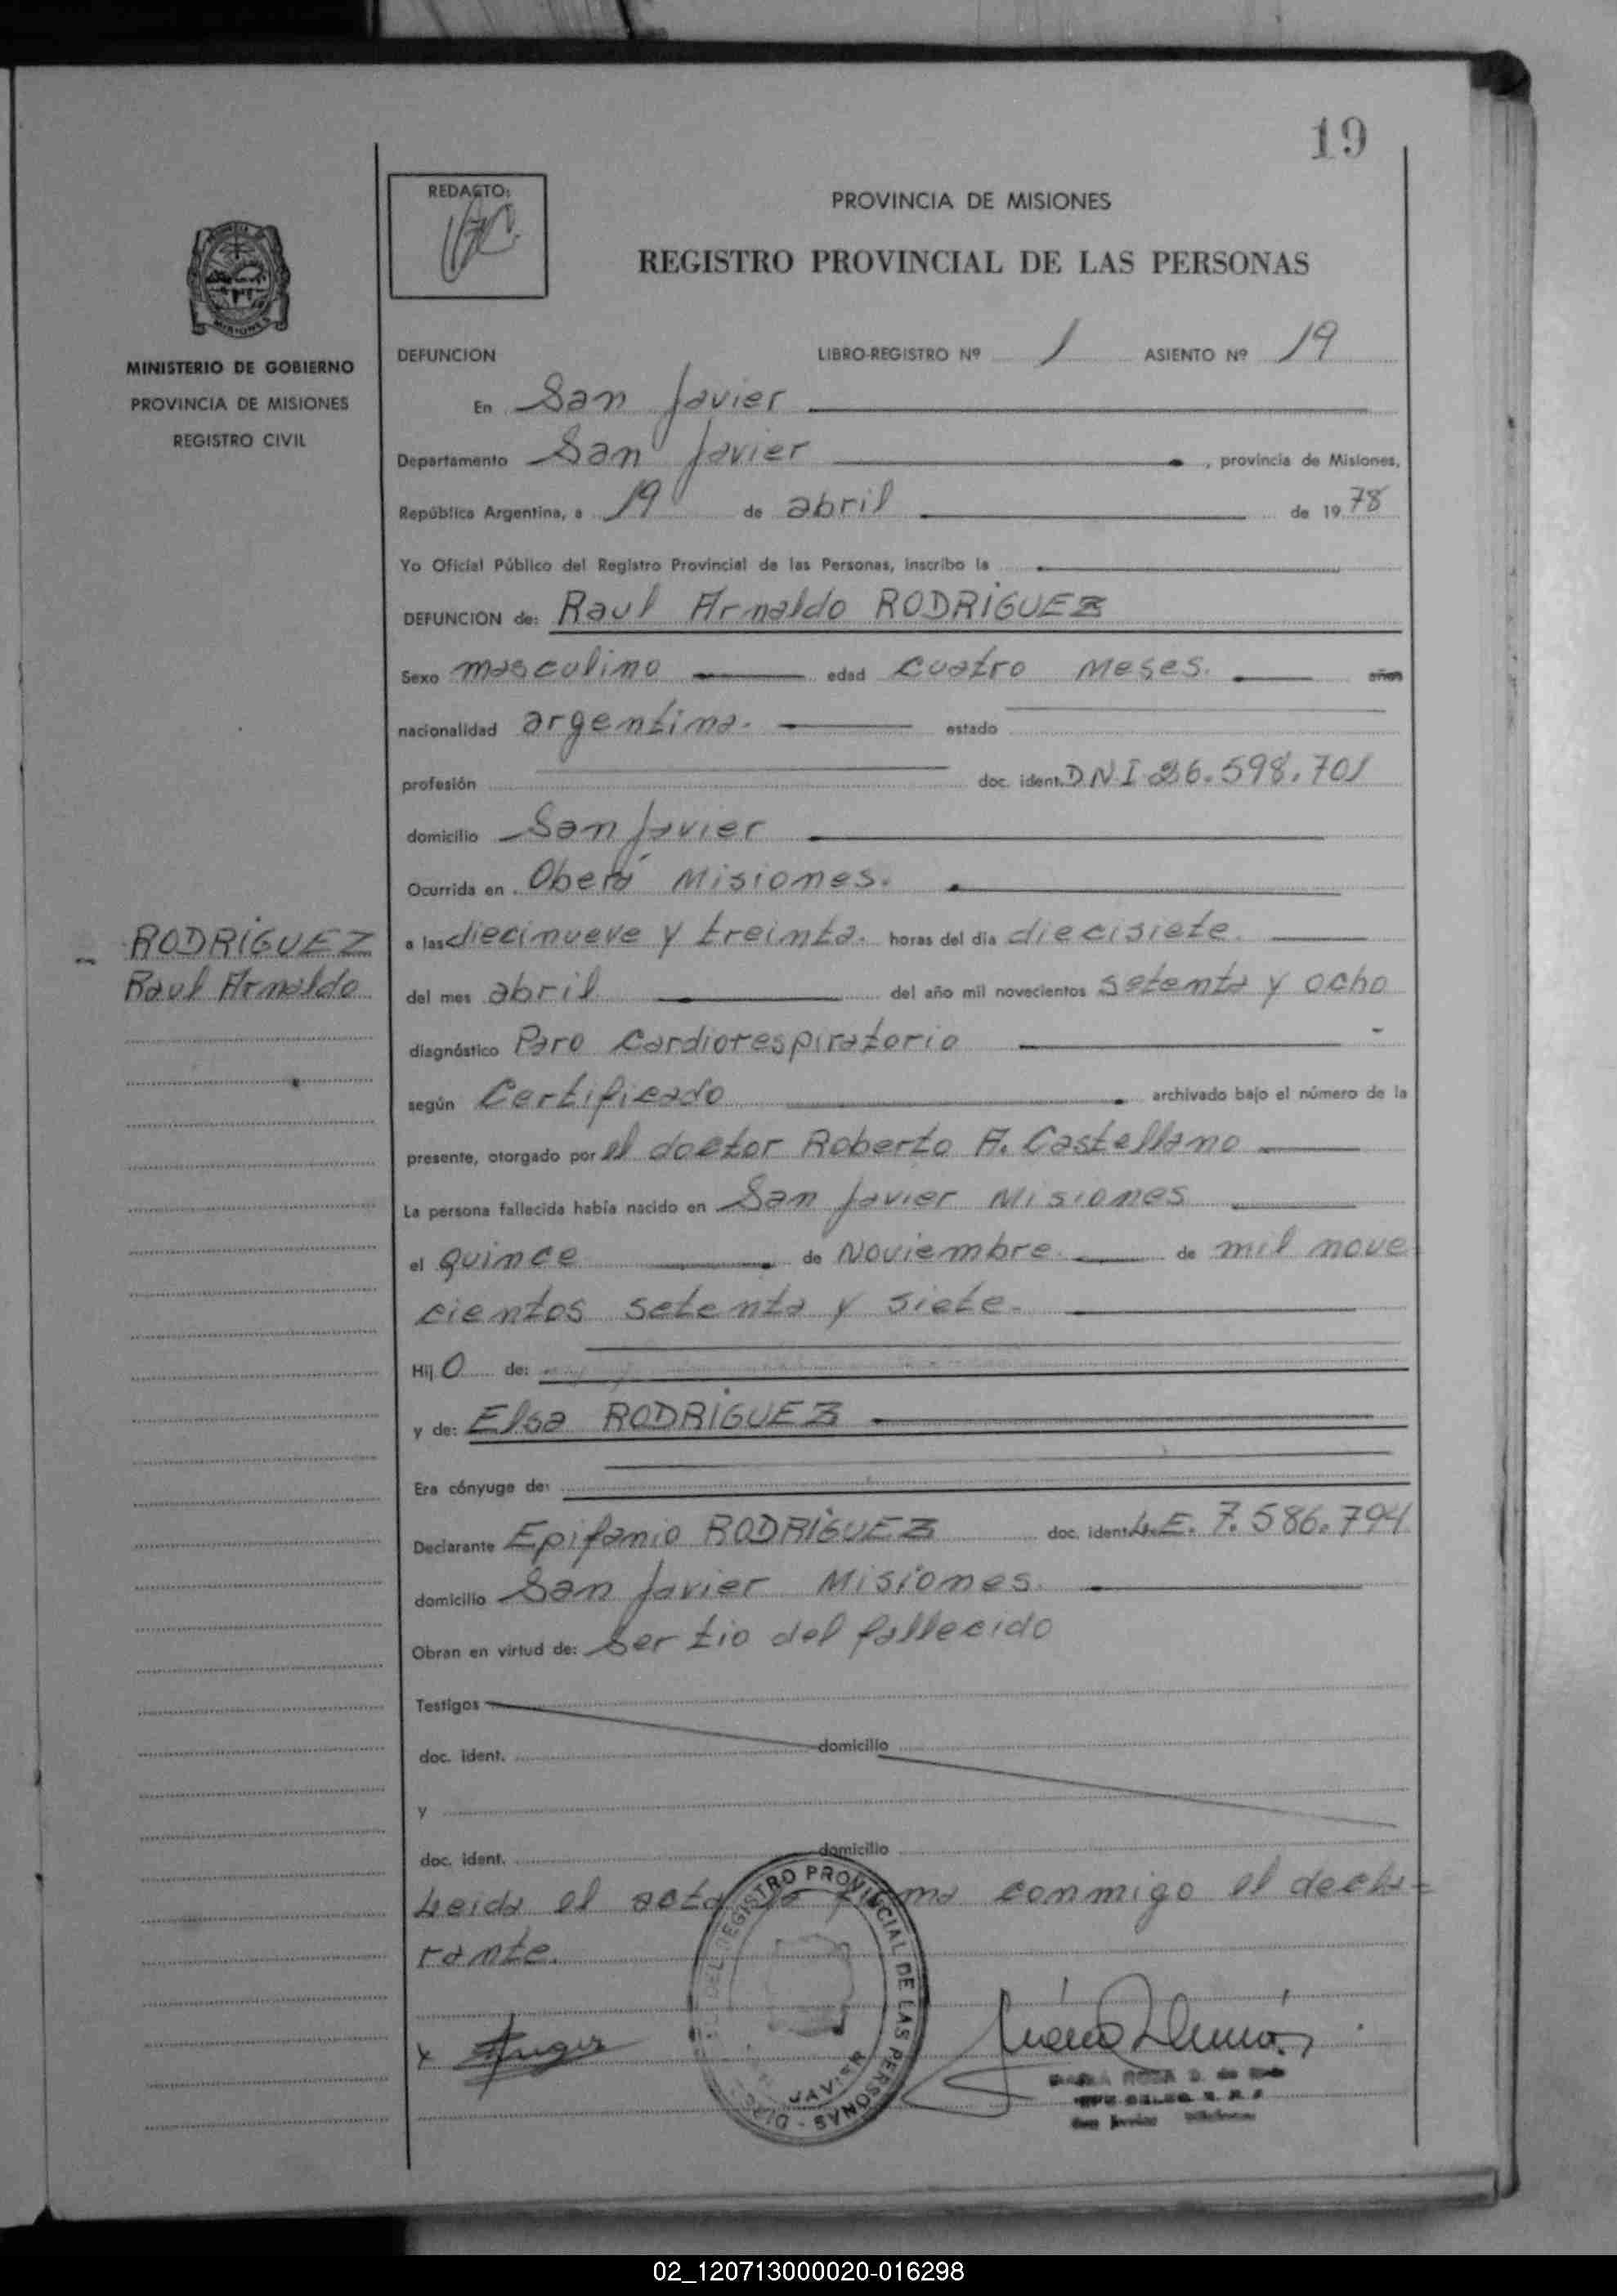 19
REDACTO:
PROVINCIA DE MISIONES
REGISTRO PROVINCIAL DE LAS PERSONAS
MINISTERIO DE GOBIERNO
PROVINCIA DE MISIONES
REGISTRO CIVIL
DEFUNCION LIBRO-REGISTRO Nº 1 ASIENTO Nº 19
En San Javier
Departamento San Javier, provincia de Misiones,
República Argentina, a 19 de abril de 1978
Yo Oficial Público del Registro Provincial de las Personas, inscribo la
DEFUNCION de: Raul Arnaldo RODRIGUEZ
Sexo masculino edad cuatro meses. años
nacionalidad argentina. estado
profesión doc. ident. D.N.I 26.598.701
domicilio San Javier
Ocurrida en Oberá Misiones.
RODRIGUEZ
Raul Arnaldo
a las diecinueve y treinta. horas del día diecisiete
del mes abril del año mil novecientos setenta y ocho
diagnóstico Paro Cardiorespiratorio
según Certificado archivado bajo el número de la
presente, otorgado por el doctor Roberto A. Castellano
La persona fallecida había nacido en San Javier Misiones
el quince de Noviembre de mil nove-
cientos setenta y siete.
Hijo de:
y de: Elsa RODRIGUEZ
Era cónyuge de:
Declarante Epifanio RODRIGUEZ doc. ident. L.E. 7.586.794
domicilio San Javier Misiones.
Obran en virtud de: ser tio del fallecido
Testigos
doc. ident. domicilio
y
doc. ident. domicilio
Leida el acta la firma conmigo el decla-
rante.
DEL REGISTRO PROVINCIAL DE LAS PERSONAS
JAVIER
x
02_120713000020-016298